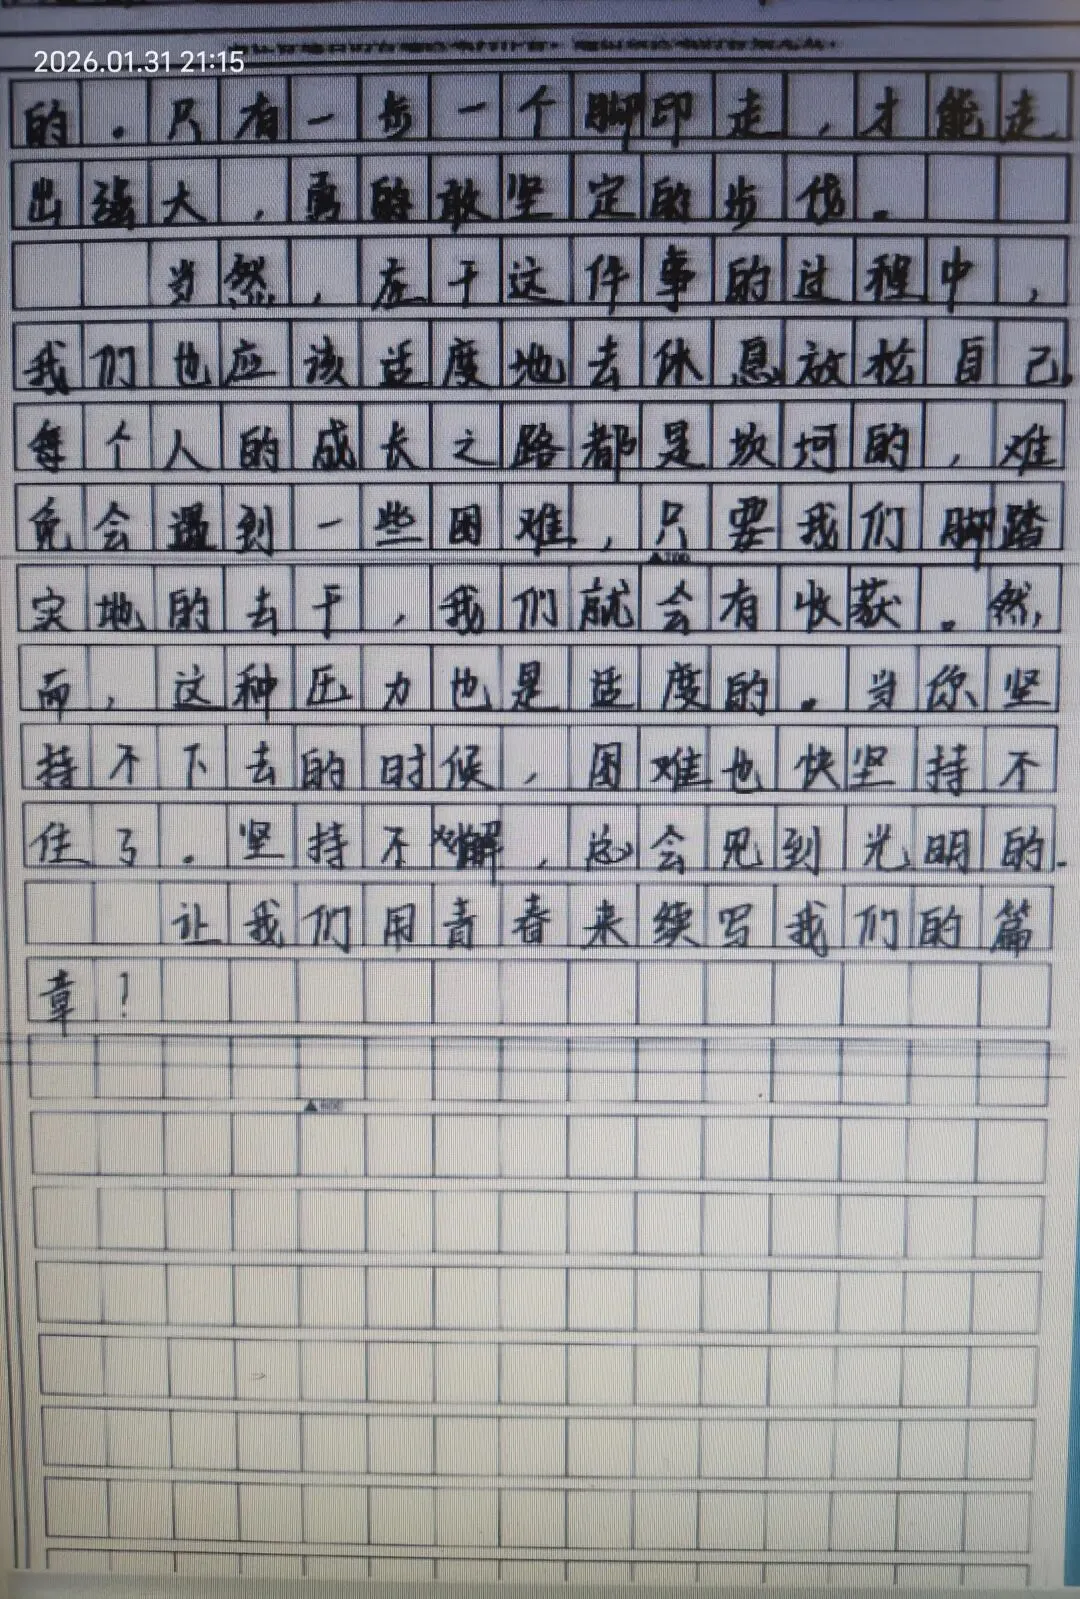 2026.01.31 21:15
的。只有一步一个脚印走，才能走
出强大，勇的敢坚定的步伐。
当然，在干这件事的过程中，
我们也应该适度地去休息放松自己，
每个人的成长之路都是坎坷的，难
免会遇到一些困难，只要我们脚踏
实地的去干，我们就会有收获。然
而，这种压力也是适度的。当你坚
持不下去的时候，困难也快坚持不
住了。坚持不懈，总会见到光明的。
让我们用青春来续写我们的篇
章！